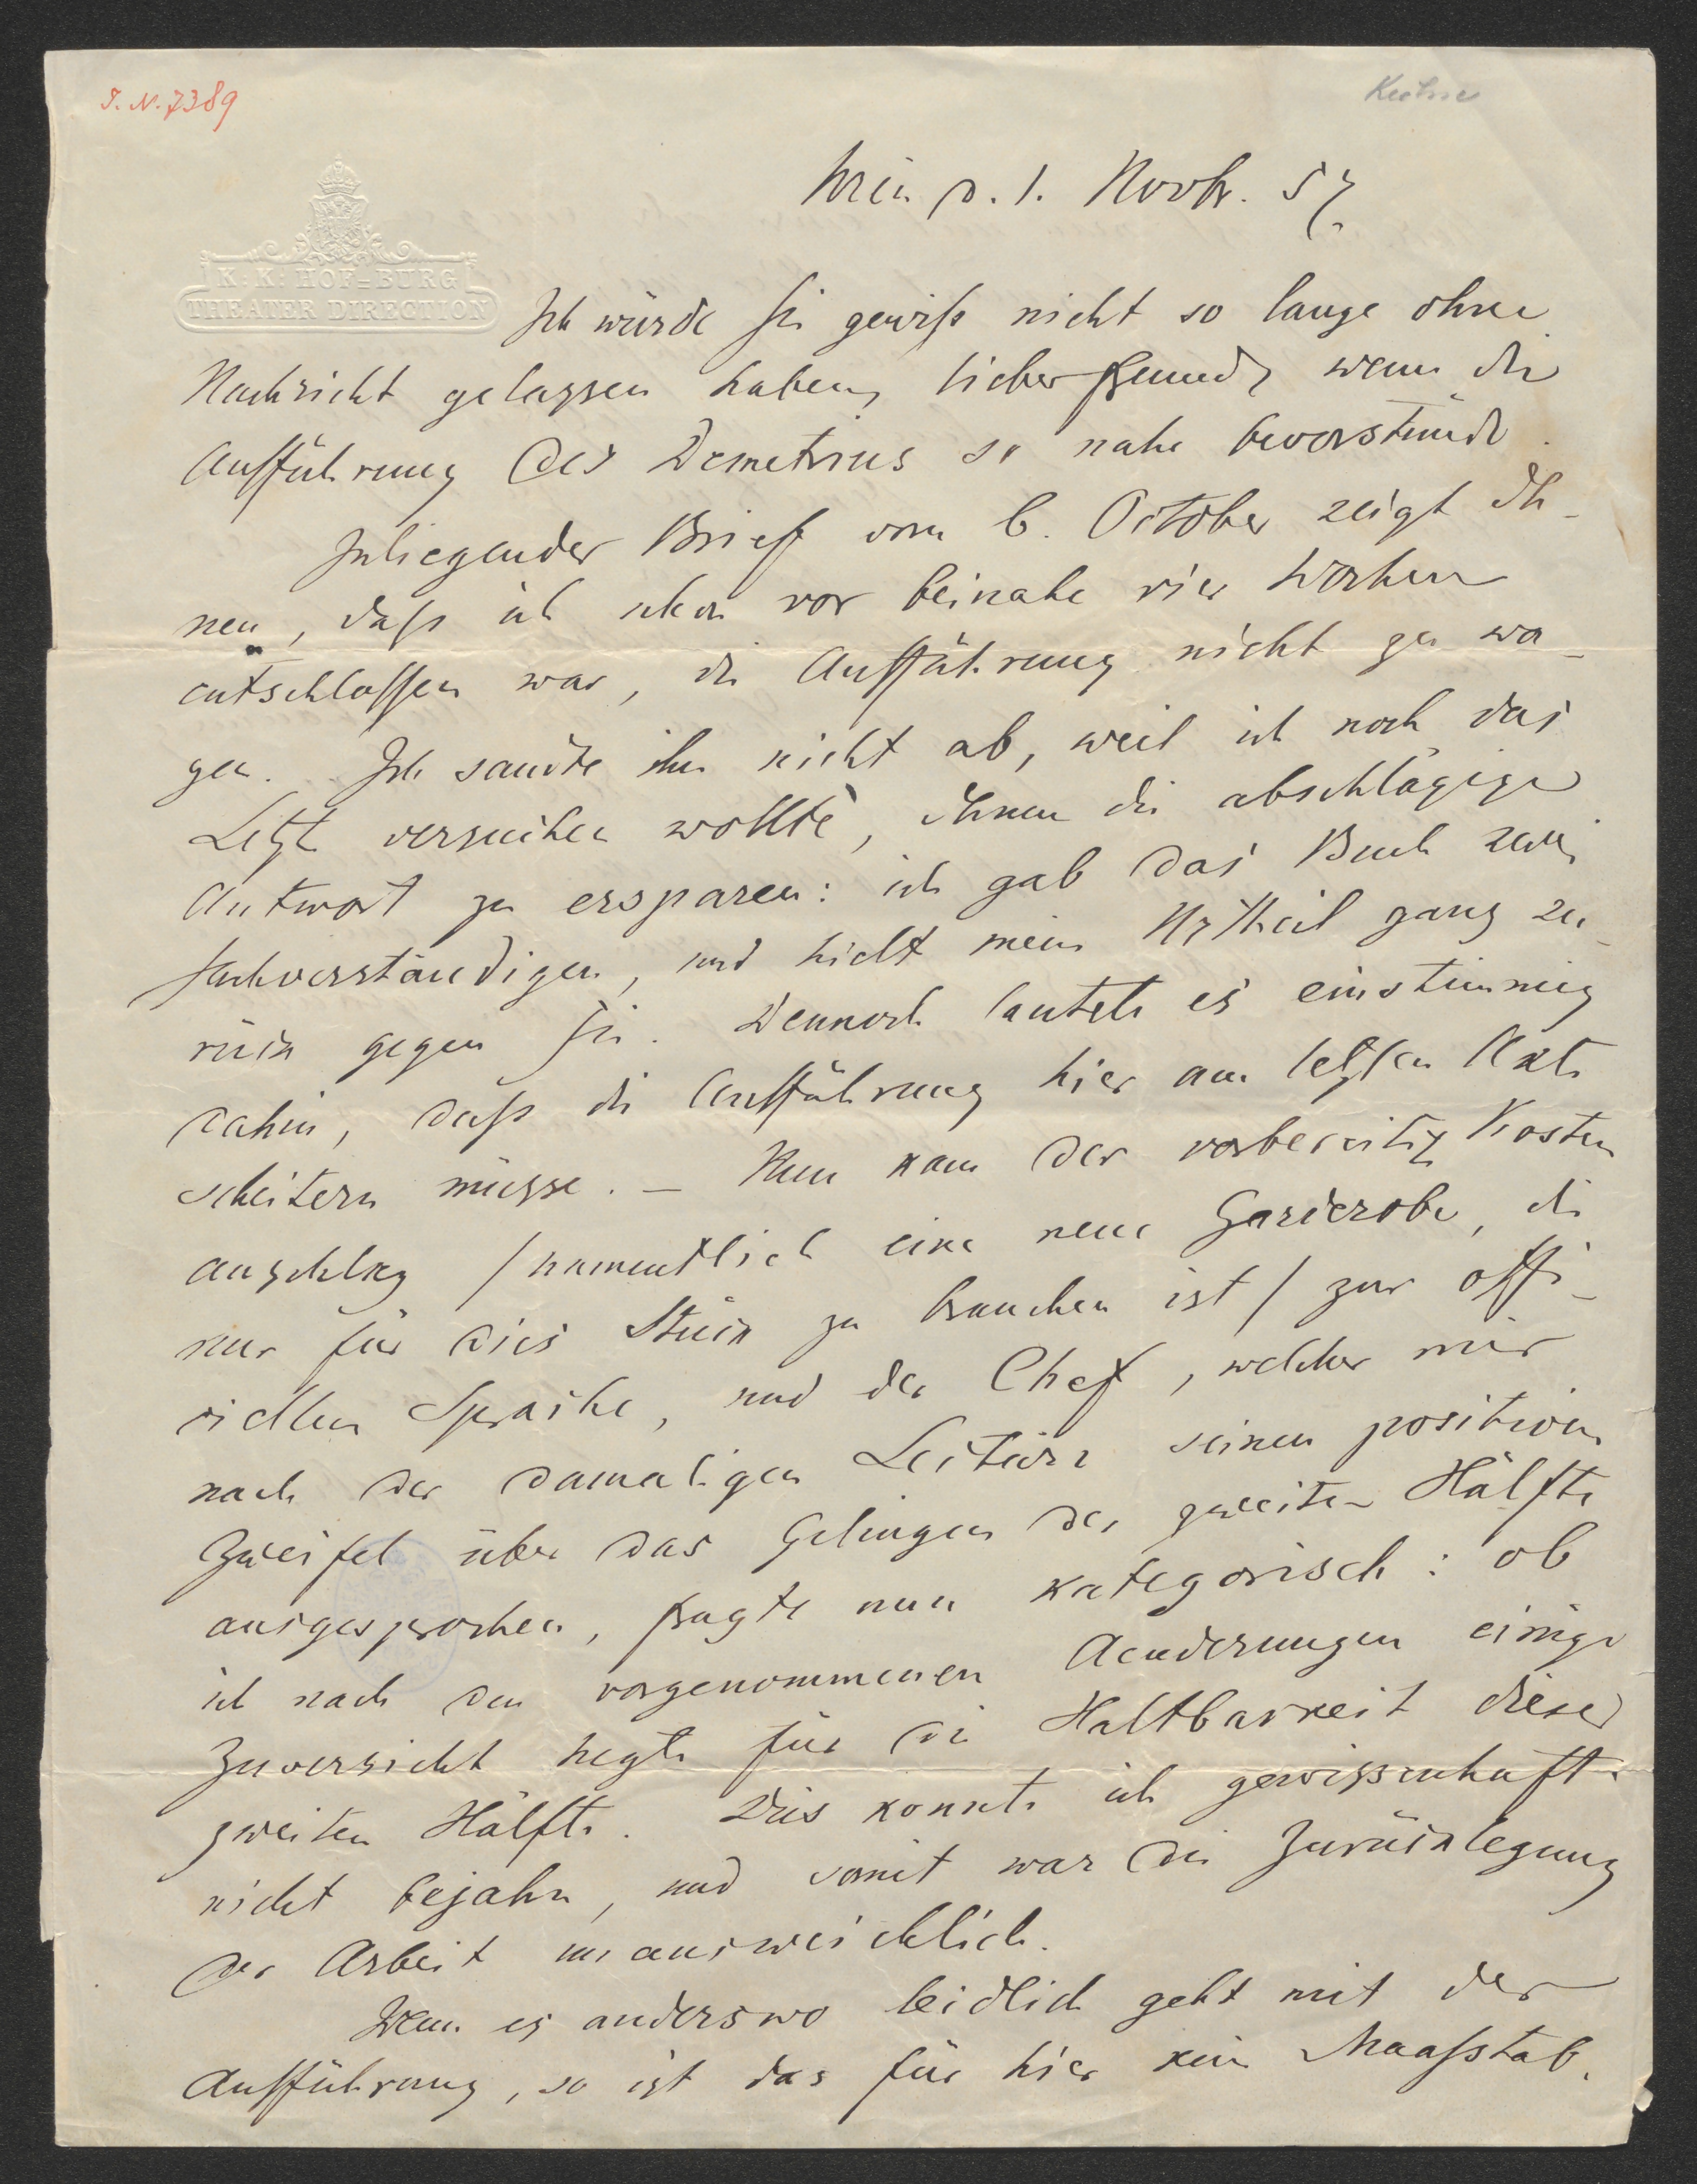 I. N. 7389
Kühne
Wien d. 1. Novbr. 57.
K: K: HOF=BURG
THEATER DIRECTION
Ich würde Sie gewiß nicht so lange ohne
Nachricht gelassen haben, lieber Freund, wenn die
Aufführung des Demetrius so nahe bevorstünde.
Inliegender Brief vom 6. October zeigt Ih-
nen, daß ich schon vor beinahe vier Wochen
entschlossen war, die Aufführung nicht zu wa-
gen. Ich sandte ihn nicht ab, weil ich noch das
Letzte versuchen wollte, Ihnen die abschlägige
Antwort zu ersparen: ich gab das Buch zwei
Sachverständigen, und hielt mein Urtheil ganz zu-
rück gegen Sie. Dennoch lautete es einstimmig
dahin, daß die Aufführung hier am letzten Akte
scheitern müsse. – Nun kam der vorbereitete Kosten
anschlag /namentlich eine neue Garderobe, die
nur für dies Stück zu brauchen ist/ zur offi-
ciellen Sprache, und der Chef, welcher mir
nach der damaligen Lectüre seinen positiven
Zweifel über das Gelingen der zweiten Hälfte
ausgesprochen, fragte nun kategorisch: ob
ich nach den vorgenommenen Aenderungen einige
Zuversicht hegte für die Haltbarkeit dieser
zweiten Hälfte. Dies konnte ich gewissenhaft
nicht bejahn, und somit war die Zurücklegung
der Arbeit unausweichlich.
Wenn es anderswo leidlich geht mit der
Aufführung, so ist das für hier kein Maaßstab.